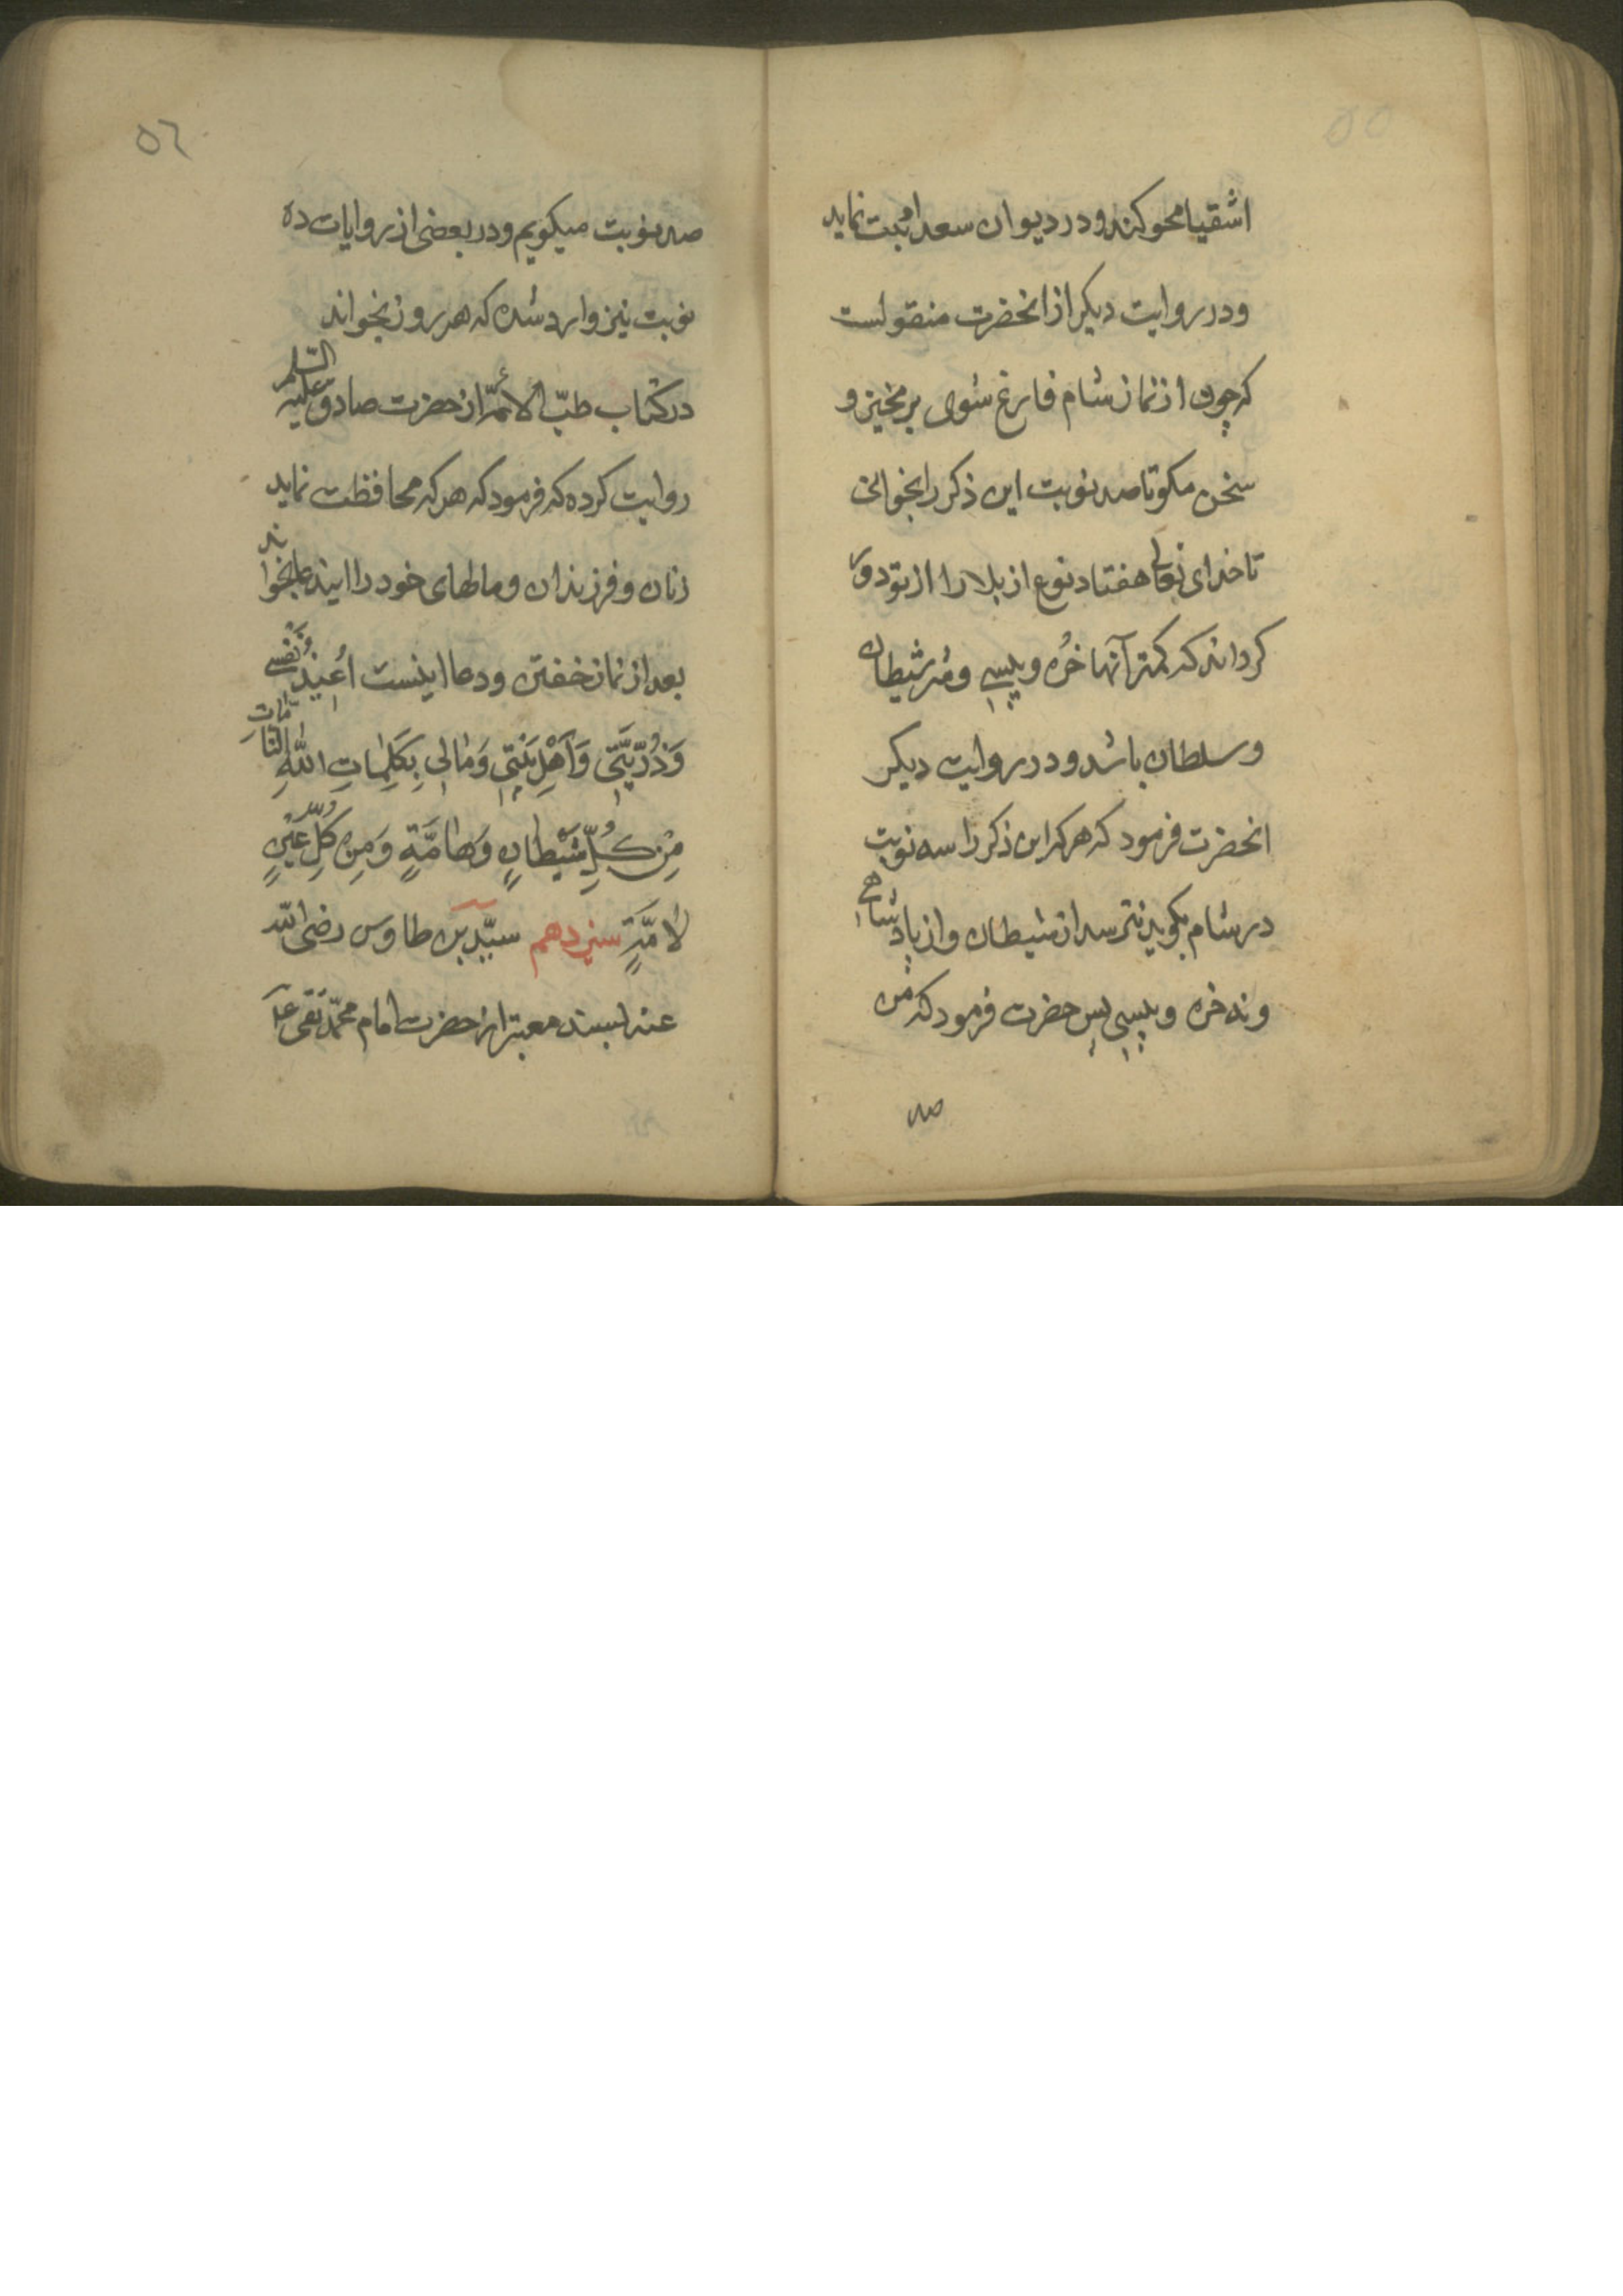 ۵۵
اشقیا محو کند و در دیوان سعدا ثبت نماید
و در روایت دیکر از انحضرت منقولست
که چون از نماز شام فارغ شوی برمخیز و
سخن مکو تا صد نوبت این ذکر را بخوانی
تا خدای تعالی هفتاد نوع از بلا را از تو دور
کرداند که کمتر آنها خُره و پیسی و شر شیطان
و سلطان باشد و در روایت دیکر
انحضرت فرمود که هر که این ذکر را سه نوبت
در شام بکوید نترسد از شیطان و از پادشاهی
و نه خره و پیسی پس حضرت فرمود که من
صد
۵۶
صد نوبت میکویم و در بعضی از روایات ده
نوبت نیز وارد شده که هر روز بخواند
در کتاب طبّ الائمّه از حضرت صادق علیه السّلم
روایت کرده که فرمود که هر که محافظت نماید
زنان و فرزندان و مالهای خود را ایندعا بخواند
بعد از نماز خفتن و دعا اینست اُعیذُ نَفْسی
وَ ذُرِّیَّتی وَ اَهْلِ بَیْتی وَ مٰالی بِکَلِمٰاتِ اللّٰهِ التّٰامّٰاتِ
مِنْ کُلِّ شَیْطانٍ وَ هٰامَّةٍ وَ مِنْ کُلِّ عَیْنٍ
لٰامَّةٍ سیزدهم سیّد بن طاوس رضی اللّه
عنه بسند معتبر از حضرت امام محمّد تقی ع